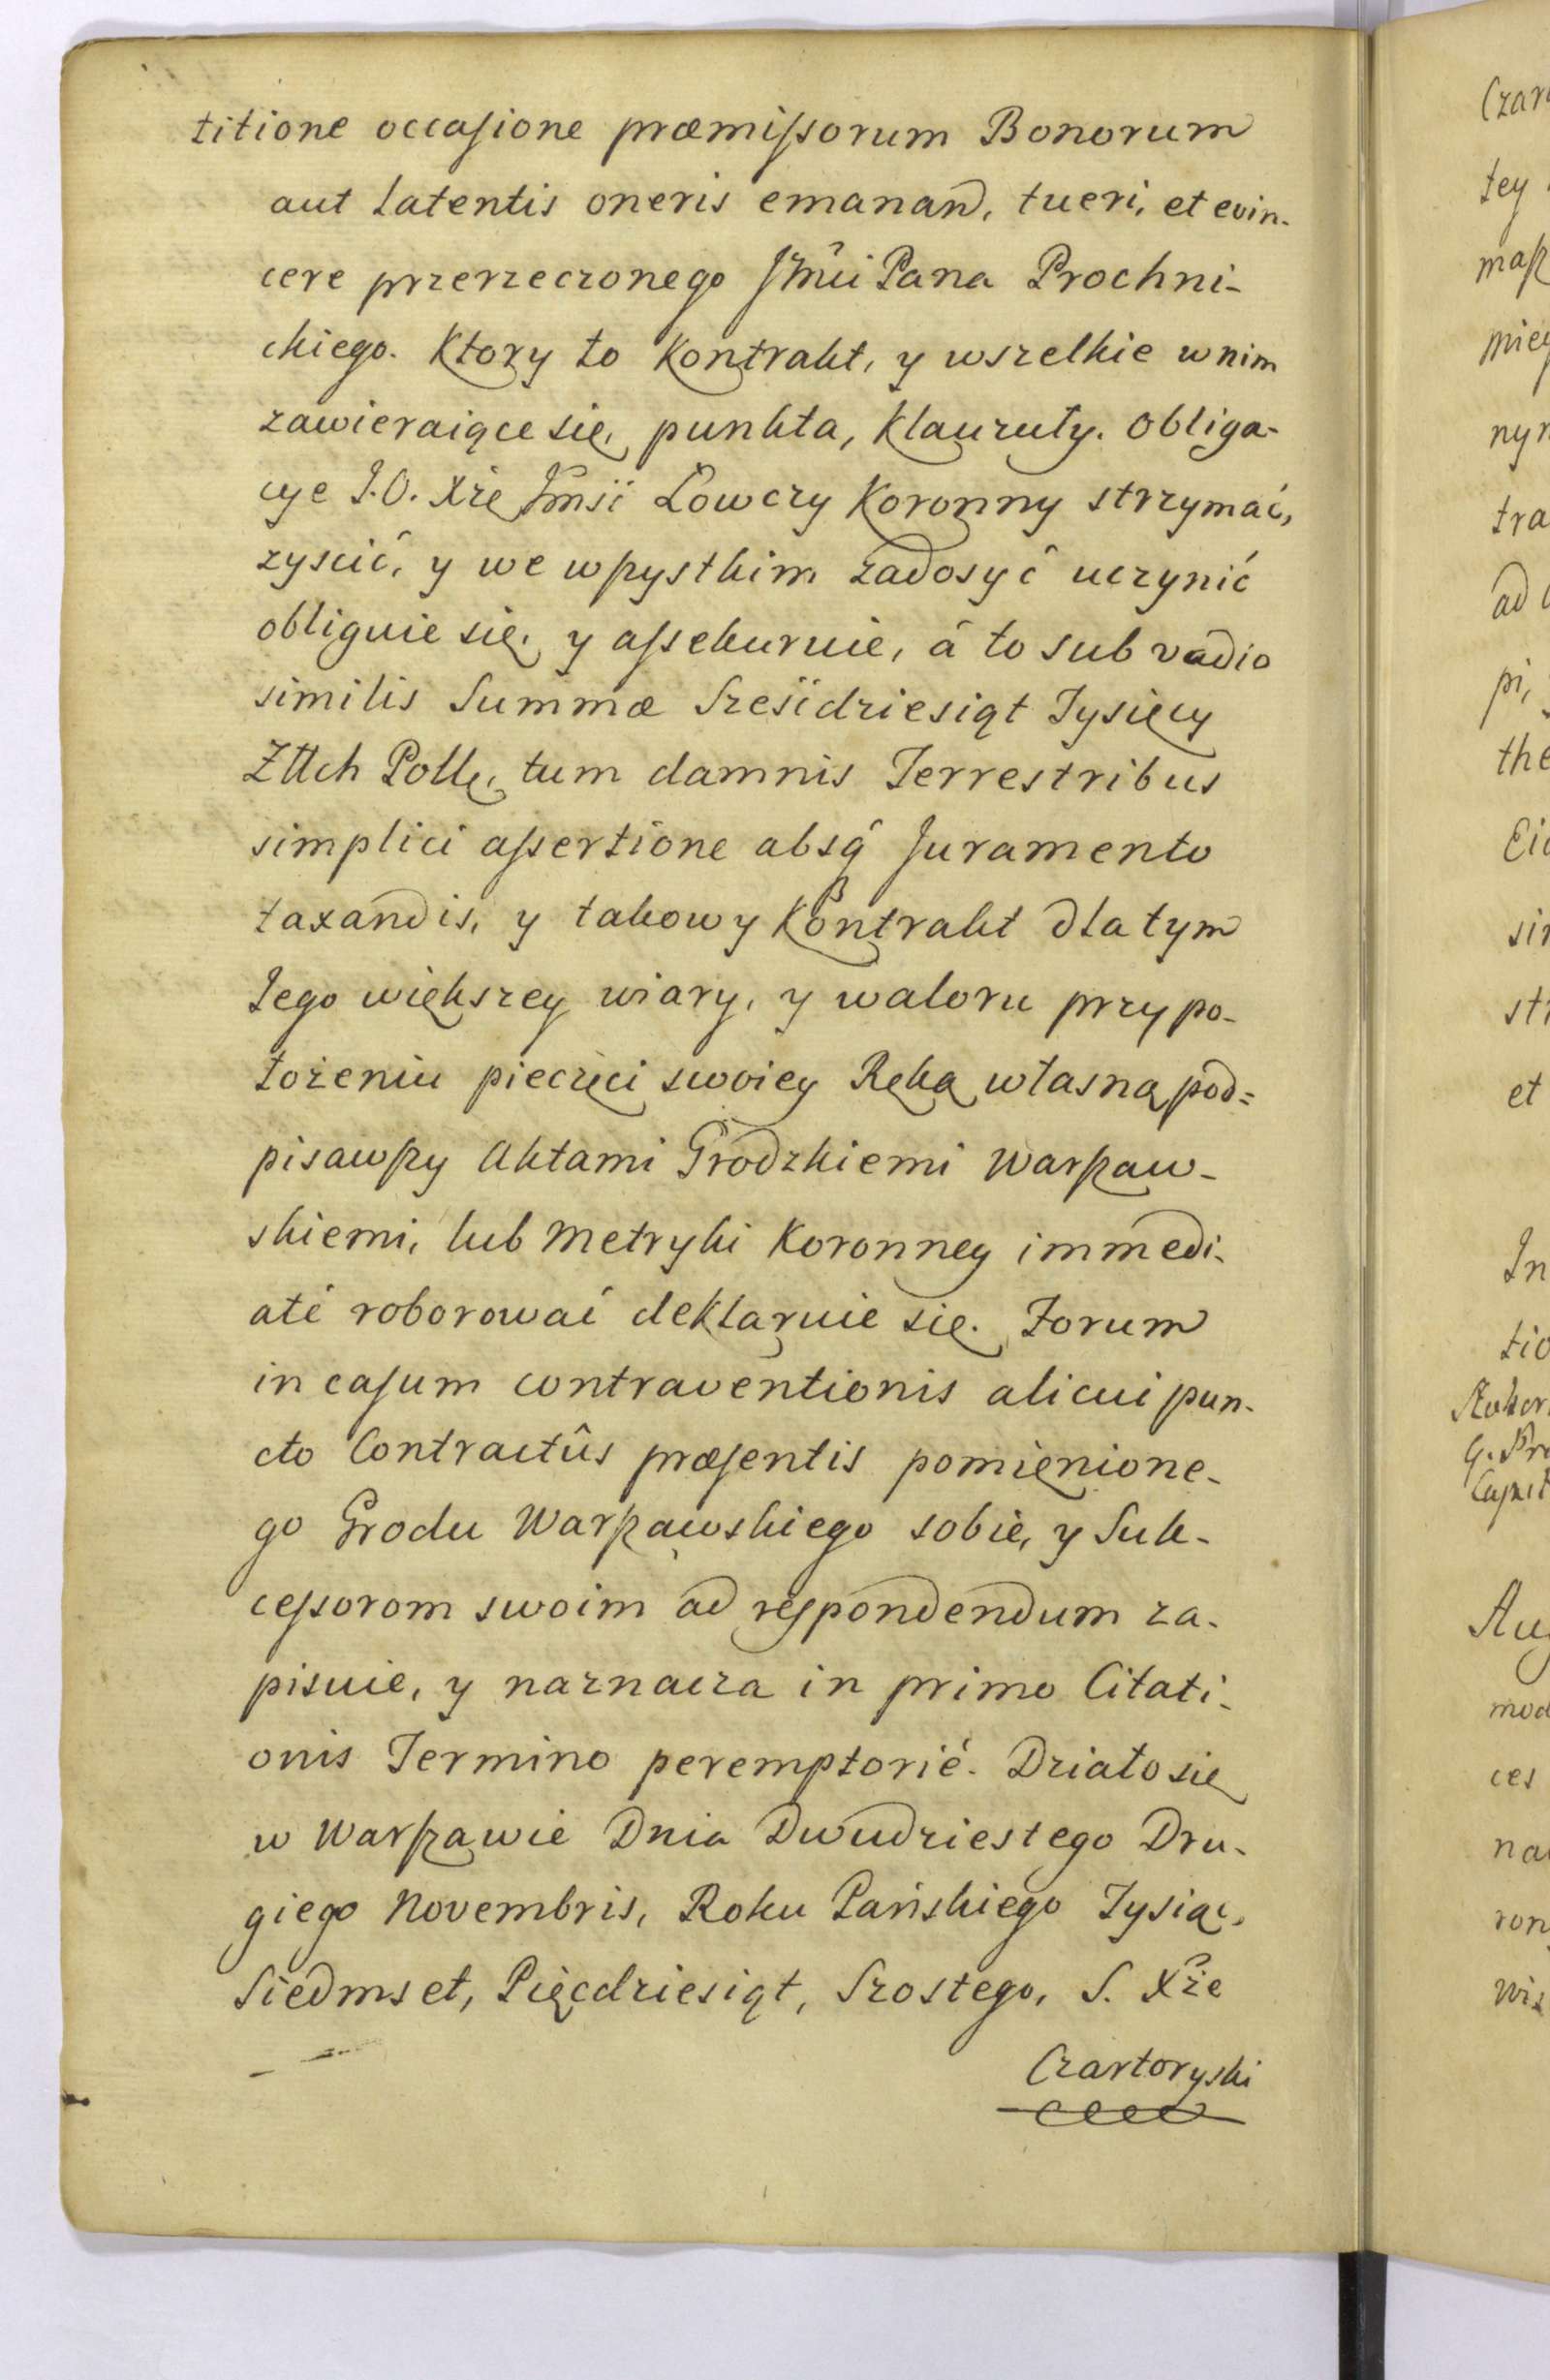 titione occasione præmissorum Bonorum
aut latentis oneris emanand, tueri, et evin-
cere przerzeczonego JMći Pana Prochni-
ckiego. Ktory to Kontrakt, y wszelkie w nim
zawieraiące się, punkta, Klauzuły. Obliga-
cye J.O. Xże Jmść Łowczy Koronny strzymać,
zyscić, y we wszystkim zadosyć uczynić
obliguie się, y assekuruie, á to sub vadio
similis Summæ Sześćdziesiąt Tysięcy
Złłch Polł, tum damnis Terrestribus
simplici assertione absq́ Juramento
taxandis, y takowy Kontrakt dla tym
Jego większey wiary, y waloru przy po-
łożeniu pieczęci swoiey Ręką własną pod=
pisawszy Aktami Grodzkiemi Warszaw-
skiemi, lub Metryki Koronney immedi-
até roborować deklaruie się. Forum
in casum contraventionis alicui pun-
cto Contractûs præsentis pomienione-
go Grodu Warszawskiego sobie, y Suk-
cessorom swoim ad respondendum za-
pisuie, y naznacza in primo Citati-
onis Termino peremptorié. Działo się
w Warszawie Dnia Dwudziestego Dru-
giego Novembris, Roku Pańskiego Tysiąc,
Siedmset, Pięcdziesiąt, Szostego, S. Xże
Czartoryski